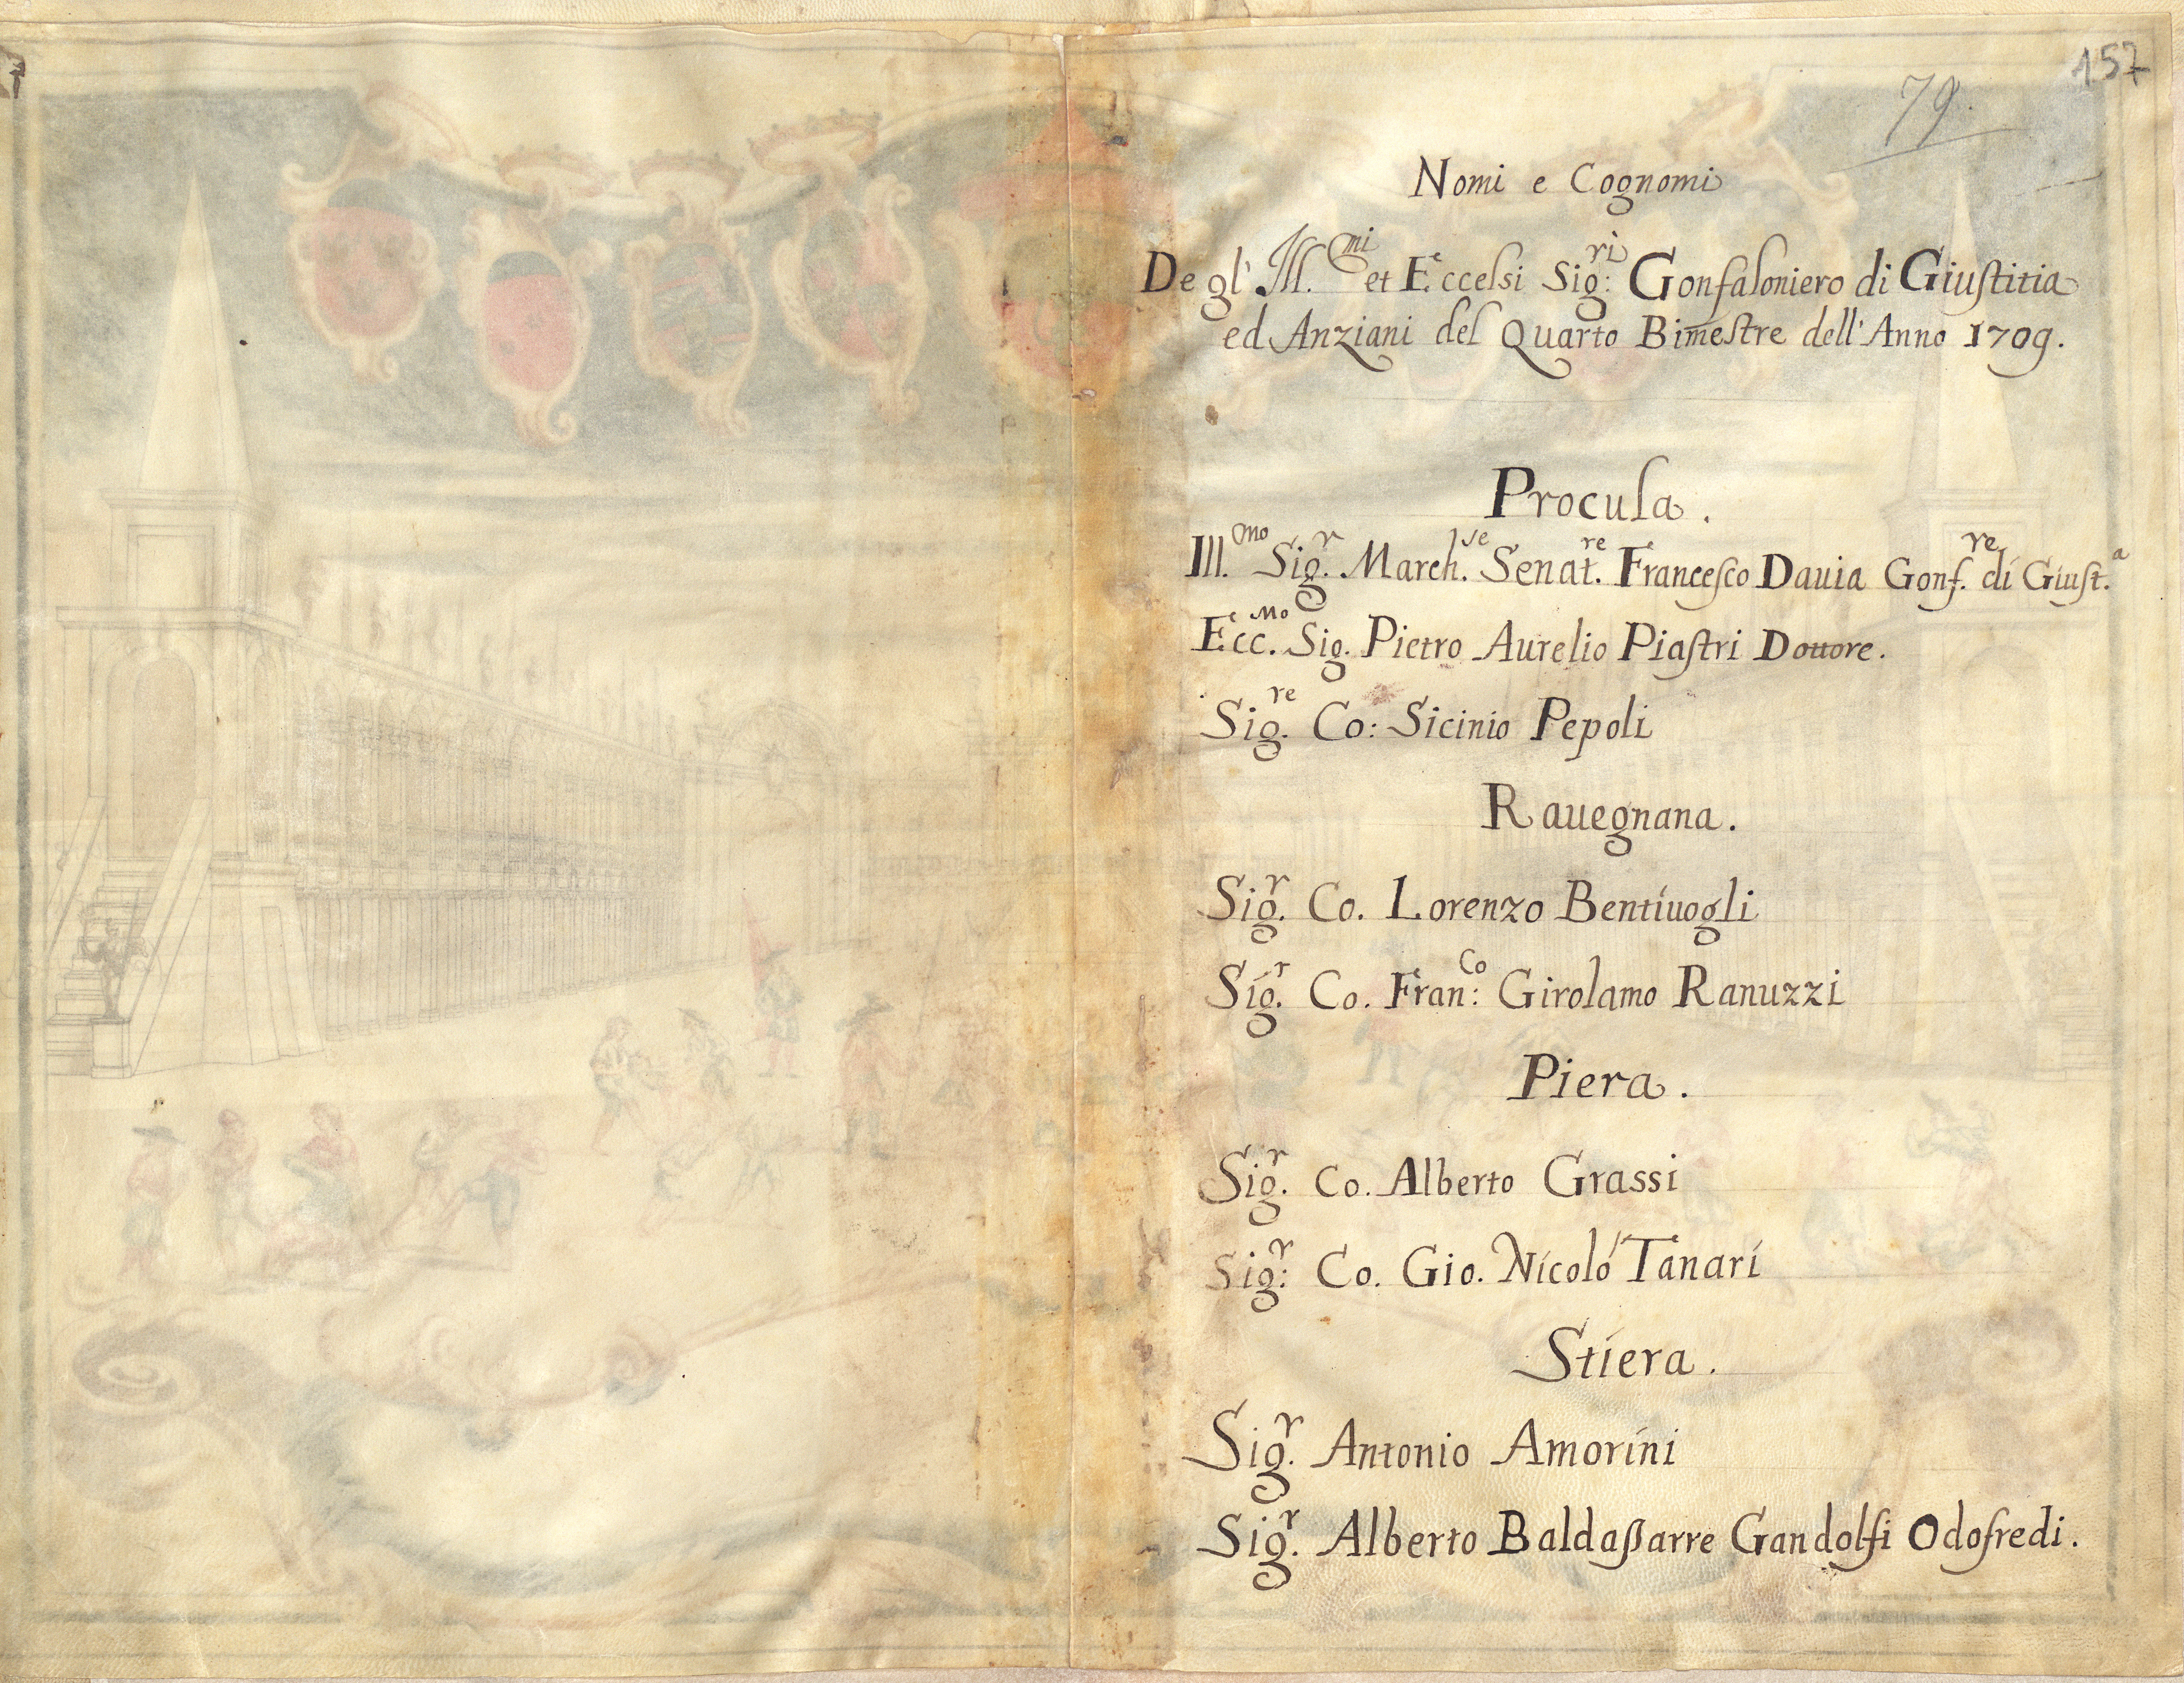 157
79.
Nomi e Cognomi
Degl' Ill.mi et Eccelsi Sig:ri Gonfaloniero di Giuſtitia
ed Anziani del Quarto Bimeſtre dell'Anno 1709.
Procula.
Ill.mo Sig.r March.se Senat.re Franceſco Dauia Gonf.re di Giuſt.a
Ecc.Mo Sig. Pietro Aurelio Piaſtri Dottore.
Sig.re Co: Sicinio Pepoli
Rauegnana.
Sig.r Co. Lorenzo Bentiuogli
Sig.r Co. Fran:co Girolamo Ranuzzi
Piera.
Sig.r Co. Alberto Grassi
Sig:r Co. Gio. Nicoló Tanari
Stiera.
Sig.r Antonio Amorini
Sig.r Alberto Baldaßarre Gandolfi Odofredi.